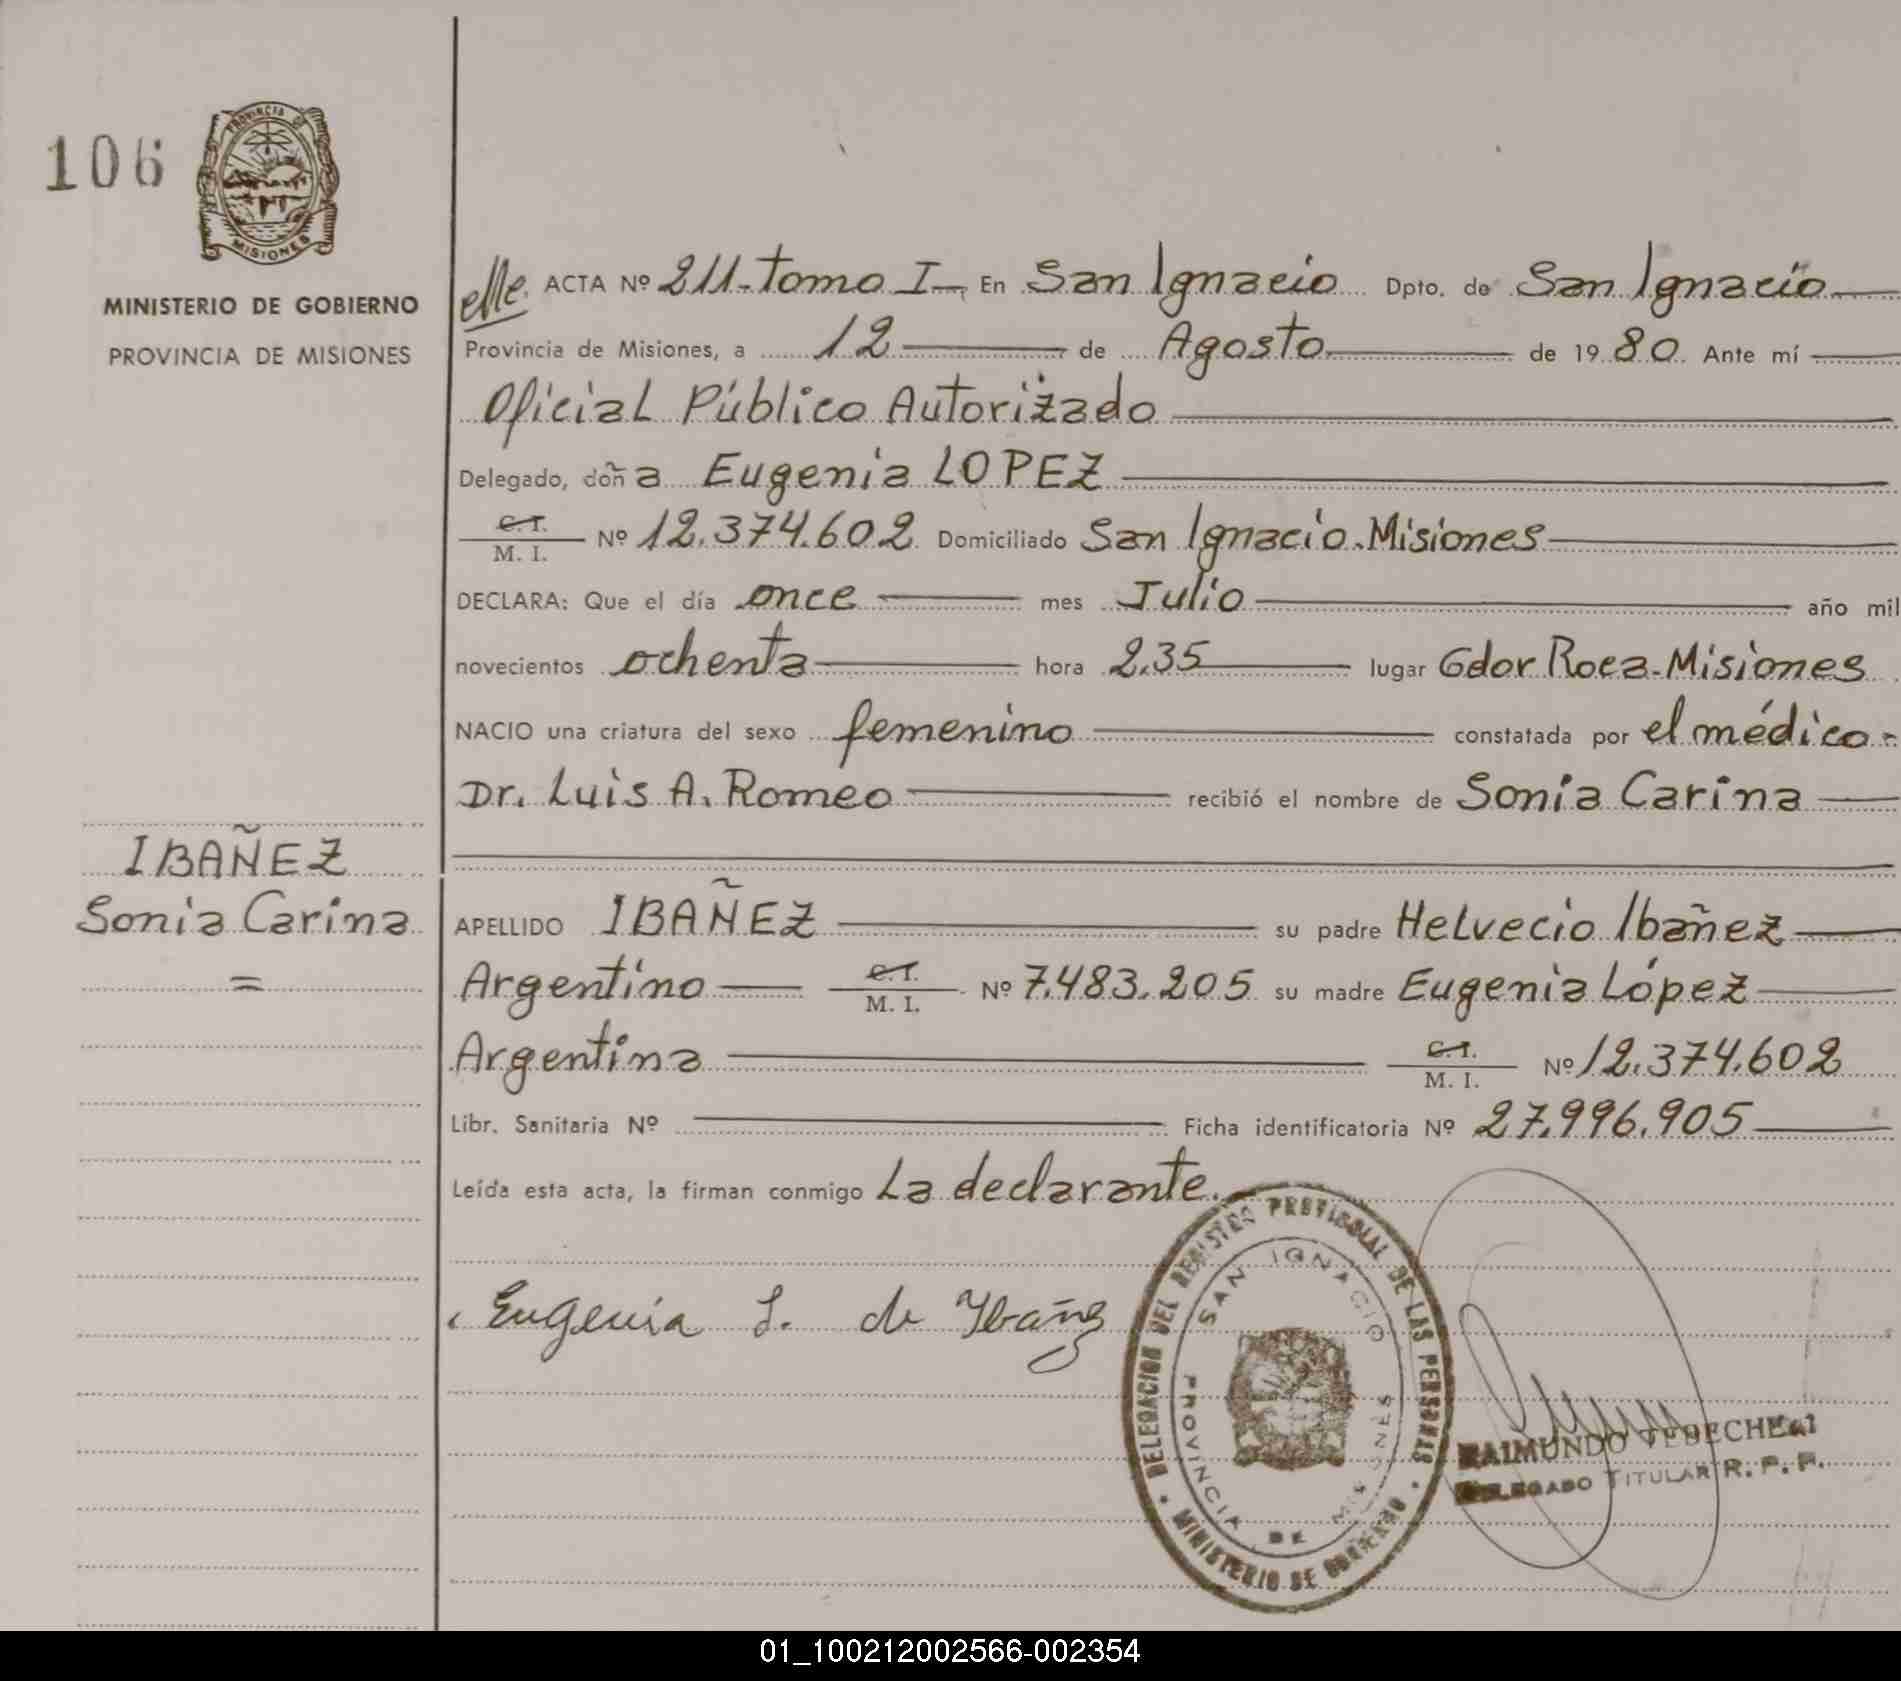 106
PROVINCIA DE
MISIONES
MINISTERIO DE GOBIERNO
PROVINCIA DE MISIONES
IBAÑEZ
Sonia Carina
=
ACTA Nº 211-tomo I- En San Ignacio Dpto. de San Ignacio
Provincia de Misiones, a 12 de Agosto de 1980 Ante mí
Oficial Público Autorizado
Delegado, doña Eugenia LOPEZ
C.I.
M. I. Nº 12.374.602 Domiciliado San Ignacio.Misiones
DECLARA: Que el día once mes Julio año mil
novecientos ochenta hora 2.35 lugar Gdor Roca-Misiones
NACIO una criatura del sexo femenino constatada por el médico-
Dr. Luis A. Romeo recibió el nombre de Sonia Carina
APELLIDO IBAÑEZ su padre Helvecio Ibañez
Argentino C.I.
M. I. Nº 7.483.205 su madre Eugenia López
Argentina C.I.
M. I. Nº 12.374.602
Libr. Sanitaria Nº Ficha identificatoria Nº 27.996.905
Leída esta acta, la firman conmigo La declarante.
Eugenia L. de Ibañez
DELEGACION DEL REGISTRO PROVINCIAL DE LAS PERSONAS
MINISTERIO DE GOBIERNO
SAN IGNACIO
PROVINCIA DE MISIONES
RAIMUNDO
DELEGADO TITULAR R. P. P.
01_100212002566-002354